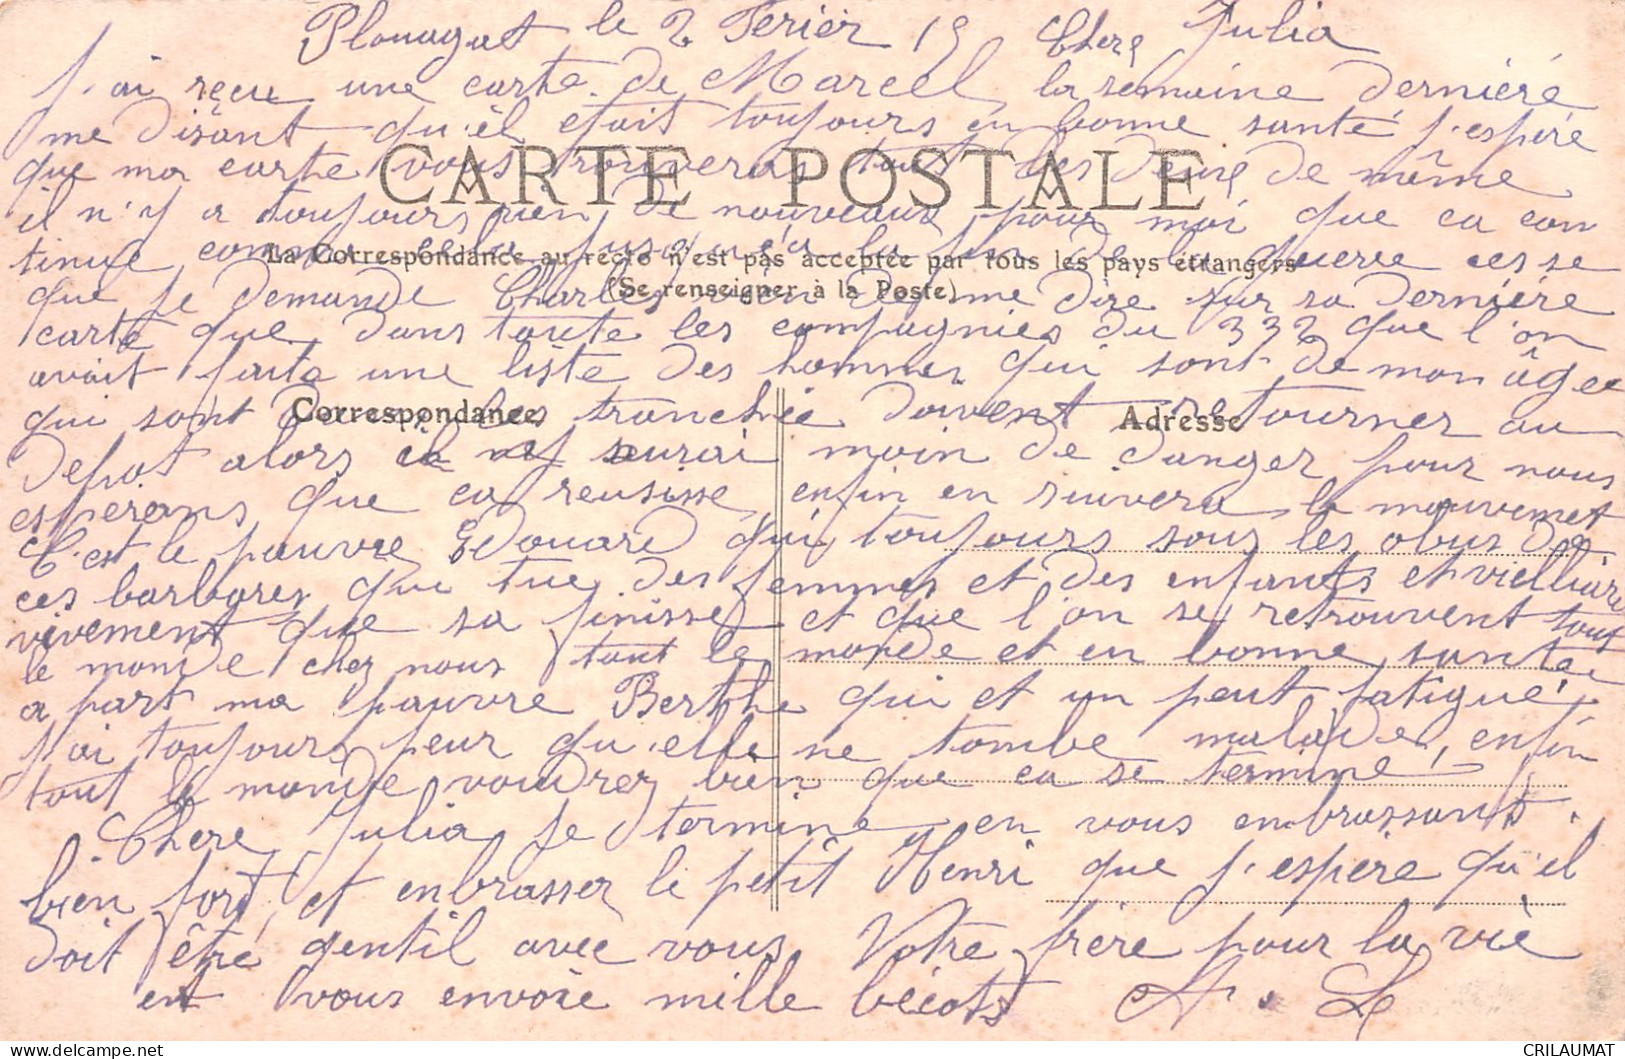 Plouagat le 2 Ferier 15 Chere Julia
J'ai reçue une carte de Marcel la semaine derniére
me disant qu'èl etait toujours en bonne santé j'espére
CARTE POSTALE
que ma carte vous trouveras tout des deux de même
il n'y a toujours rien de nouveaux pour moi que ca con
tinue comme cela jusqu'a la fin de la guerre ces se
La Correspondance au recto n'est pas acceptée par tous les pays étrangers
(Se renseigner à la Poste)
que je demande Charles vien de me dire sur sa derniére
carte que dans toute les compagnies du 332 que l'on
avait faite une liste des hommes qui sont de mon âgee
Correspondance Adresse
qui sont dans les tranchée doivent retourner au
depot alors il seurai moin de danger pour nous
esperons que ca reusisse enfin en suivera le mouvemet
C'est le pauvre Edouard qui toujours sous les obus de
ces barbares qui tue des femmes et des enfants et vielliare
vivement que sa finisse et que l'on se retrouvent tout
le monde chez nous tout le monde et en bonne sante
a part ma pauvre Berthe qui et un peut fatigué
j'ai toujours peur qu'elle ne tombe malade, enfin
tout le monde voudrez bien que ca se termine
Chere Julia je termine en vous enbrassants
bien fort et enbrasser le petit Henri que j'espère qu'il
doit être gentil avec vous Votre frère pour la vie
ent vous envoie mille bécots A. L
CRILAUMAT